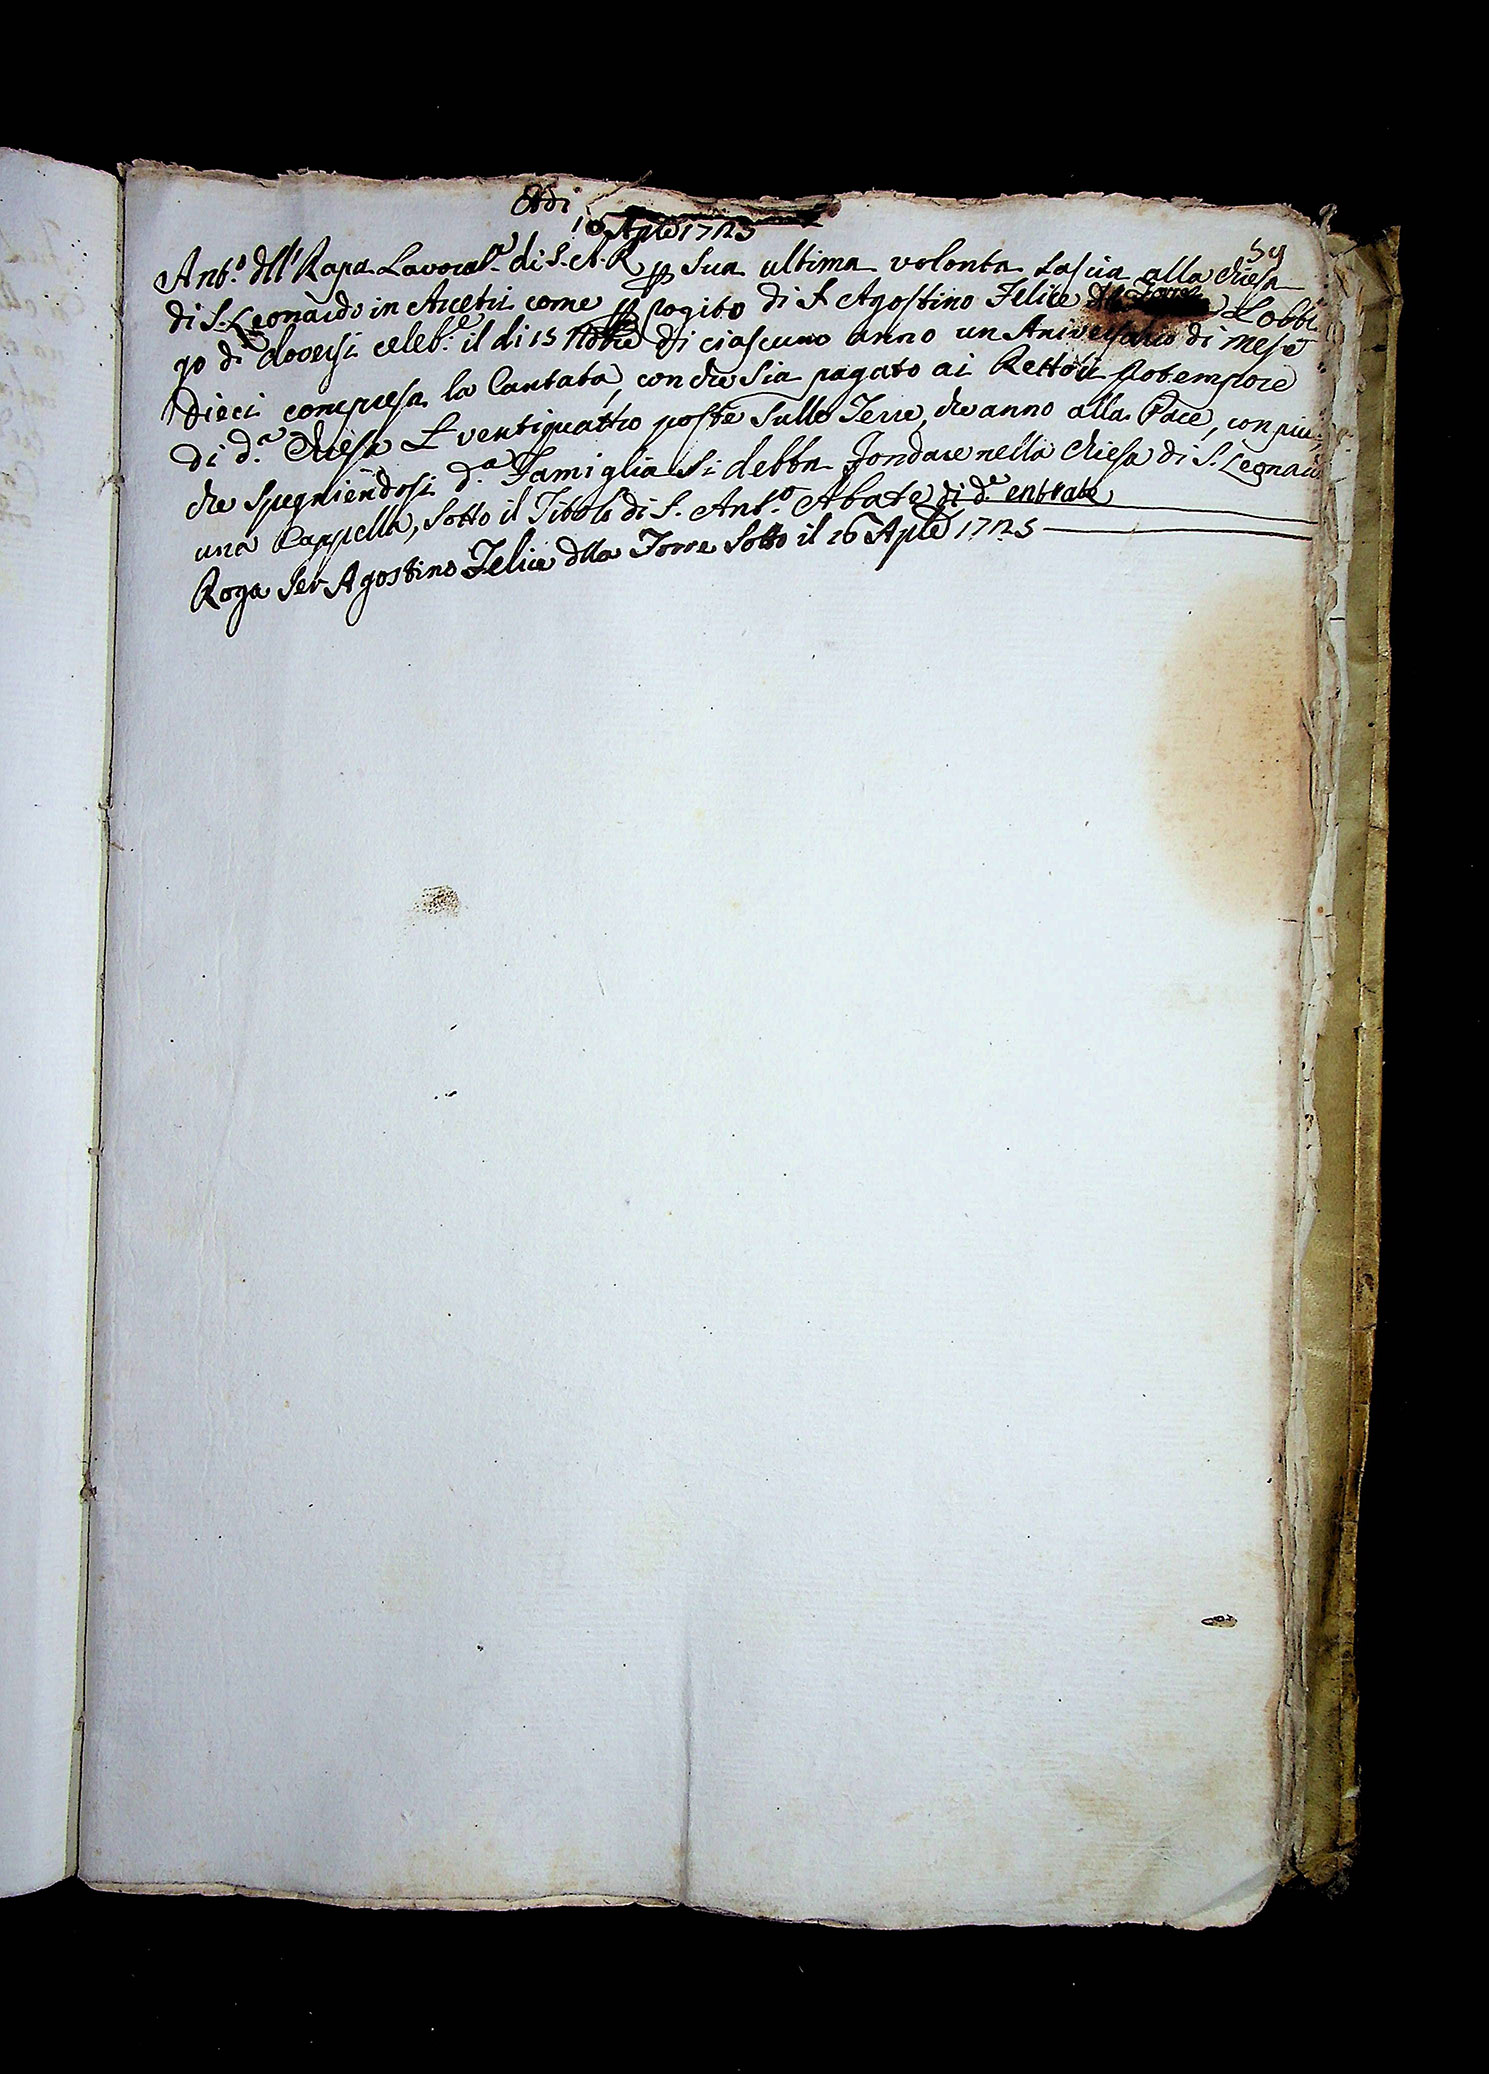 Adi
16 Aple 1725
59
Ant.o dll' Rapa Lavorat.e di S. A. R. p sua ultima volonta Lascia alla chiesa
di S. Leonardo in Arcetri come p rogito di S. Agostino Felice dlla Torre L'obbli
go di doversi celeb.e il di 15 9bre di ciascuno anno un Aniversario di mese
Dieci compresa la Cantata, con che sia pagato ai Rettori Protempore
di d.a Chiesa L ventiquattro poste sulle Terre, che anno alla Pace, con piu,
che spegniendosi d.a Famiglia si debba fondare nella chiesa di S. Leonardo
una Cappella, sotto il Titolo di S. Ant.o Abate di d.e entrate
Roga Ser Agostino Felice dlla Torre sotto il 16 Aple 1725